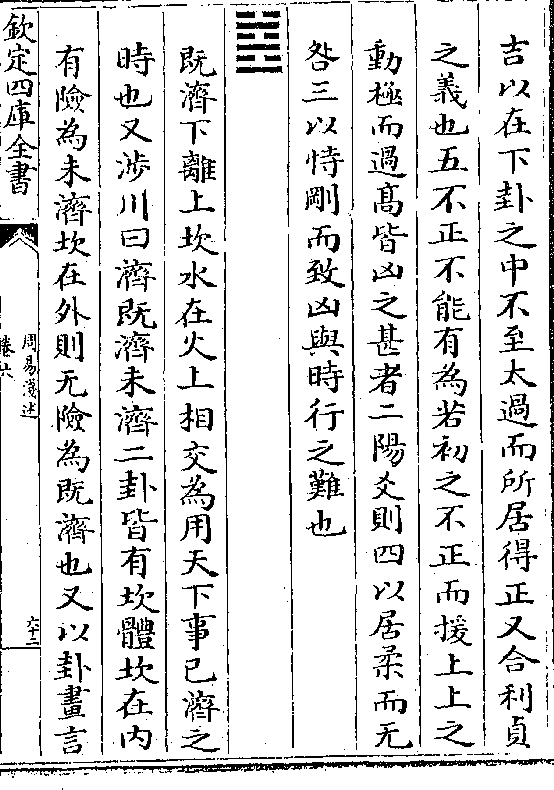 吉以在下卦之中不至太過而所居得正又合利貞
之義也五不正不能有為若初之不正而援上上之
動極而過髙皆凶之甚者二陽爻則四以居柔而无
咎三以恃剛而致凶與時行之難也
既濟下離上坎水在火上相交為用天下事已濟之
時也又渉川曰濟既濟未濟二卦皆有坎體坎在内
有險為未濟坎在外則无險為既濟也又以卦畫言
欽定四庫全書
周易淺述
卷六
六十二